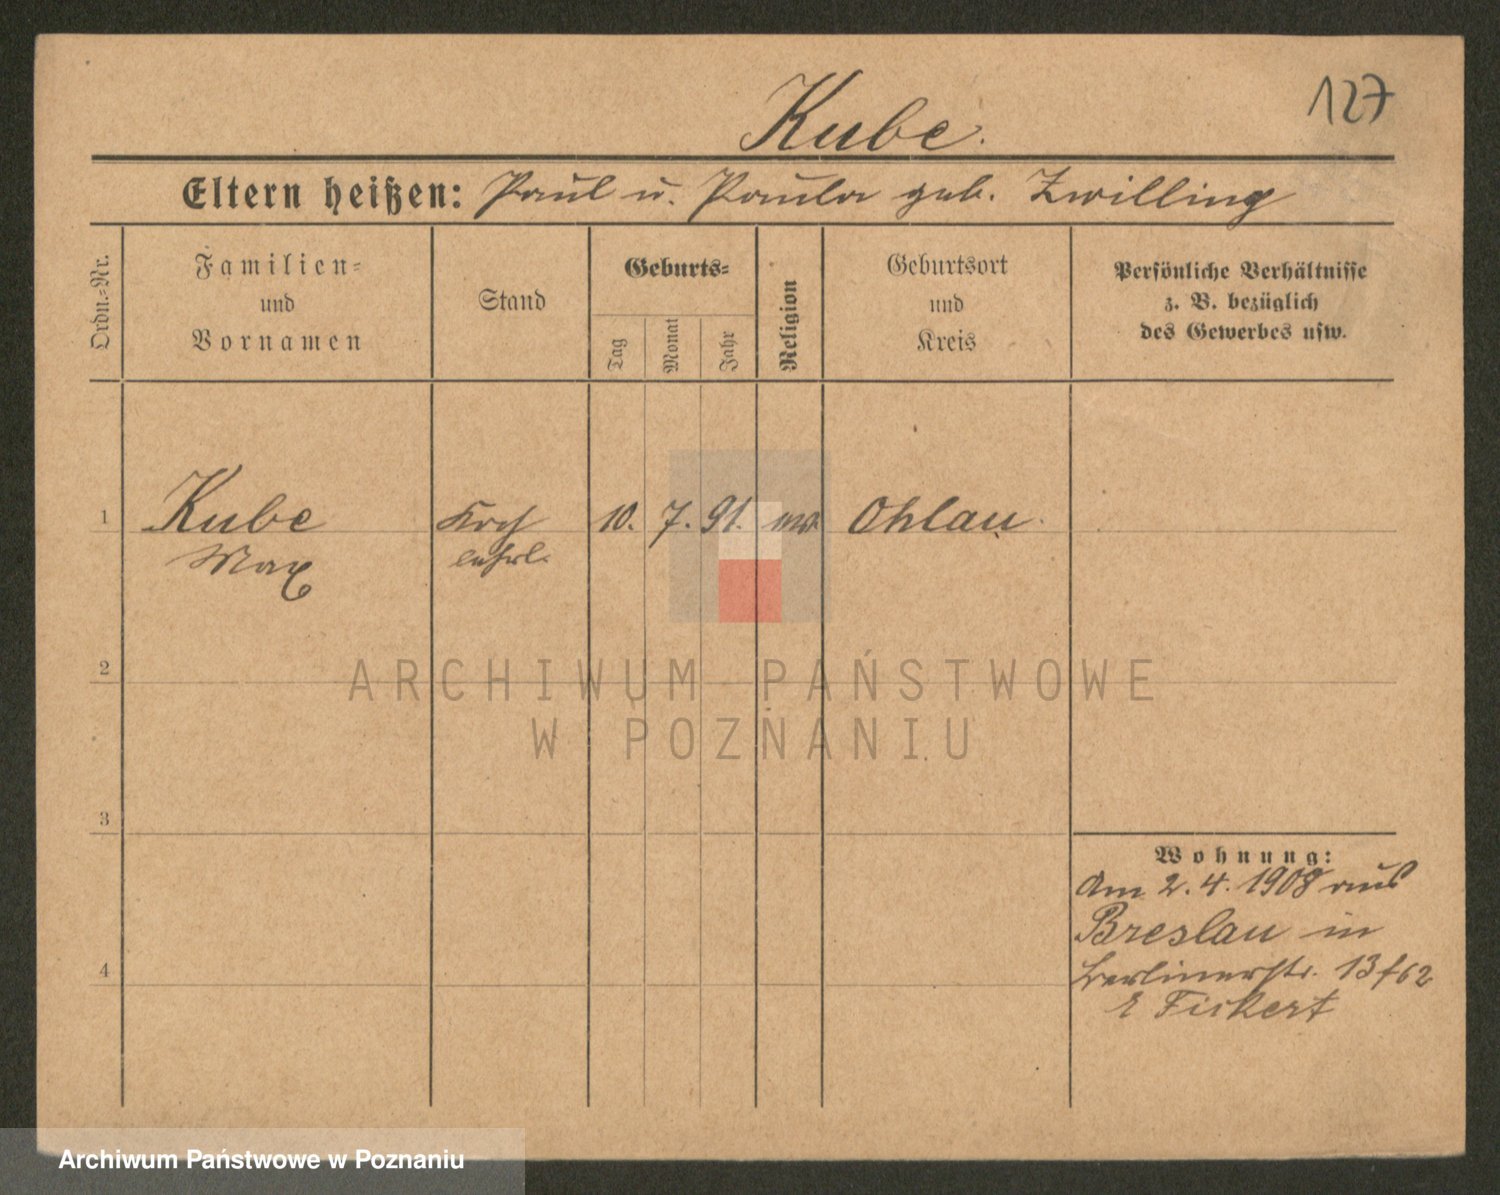 127
Kube.
Eltern heißen: Paul u. Paula geb. Zwilling
Ordn.-Nr.
Familien-
und
Vornamen
Stand
Geburts-
Tag
Monat
Jahr
Religion
Geburtsort
und
Kreis
Persönliche Verhältnisse
z. B. bezüglich
des Gewerbes usw.
1 Kube Koch 10. 7. 91. Ohlau.
Max lehrl.
2
ARCHIWUM PAŃSTWOWE
W POZNANIU
3
Wohnung:
Am 2. 4. 1908 aus
Breslau in
4
Berlinerstr. 13
Fickert
Archiwum Państwowe w Poznaniu